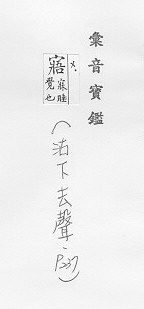 彙音寶鑑
寤
寐睡
覺也
(沽下去聲,P237)